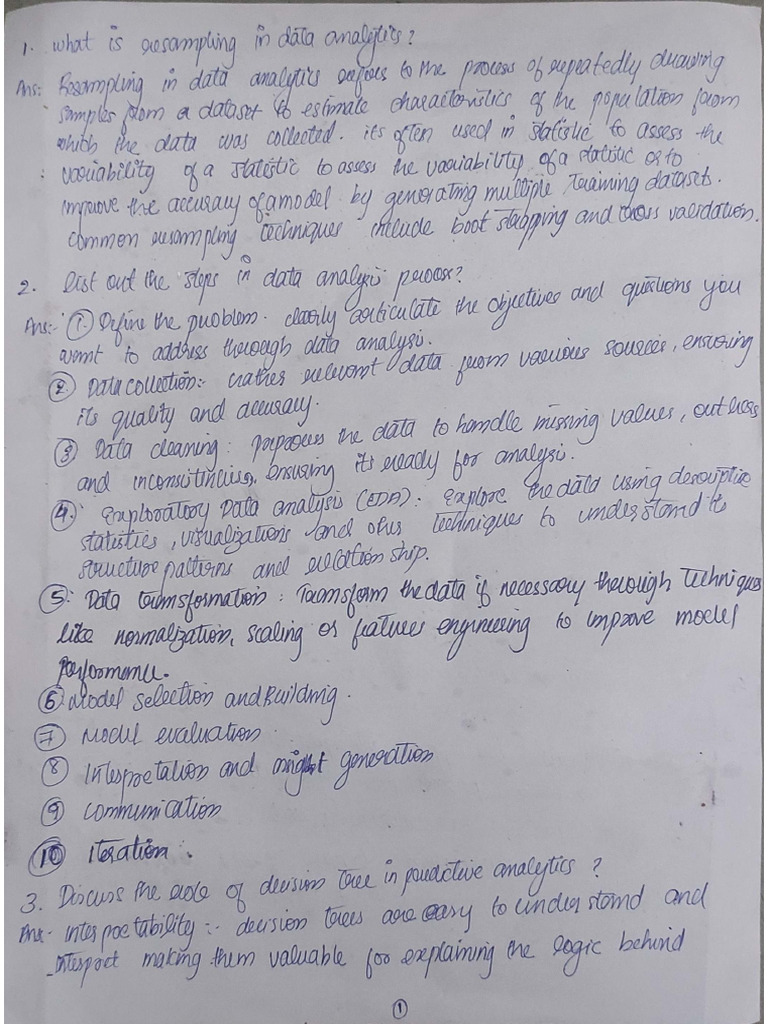 1. what is resampling in data analytics?
Ans: Resampling in data analytics refers to the process of repeatedly drawing
samples from a dataset to estimate characteristics of the population from
which the data was collected. its often used in statistic to assess the
variability of a statistic to assess the variability of a statistic or to
improve the accuracy of a model by generating multiple training datasets.
common resampling techniques include boot strapping and cross validation.
2. list out the steps in data analysis process?
Ans:- ① Define the problem. clearly articulate the objectives and questions you
want to address through data analysis.
② Data collection:- Gather relevant data from various sources, ensuring
its quality and accuracy.
③ Data cleaning: preprocess the data to handle missing values, outliers
and inconsistincies, ensuring its ready for analysis.
④. Exploratory Data analysis (EDA): Explore the data using descriptive
statistics, visualizations and other techniques to understand its
structure patterns and relationship.
⑤: Data transformation: Transform the data if necessary through techniques
like normalization, scaling or features engineering to improve model
performance.
⑥ Model selection and Building.
⑦ Model evaluation.
⑧ Interpretation and insight generation
⑨ communication
⑩ iteration.
3. Discuss the role of decision tree in predictive analytics?
Ans- interpretability:- decision trees are easy to understand and
-interpret making them valuable for explaining the logic behind
①